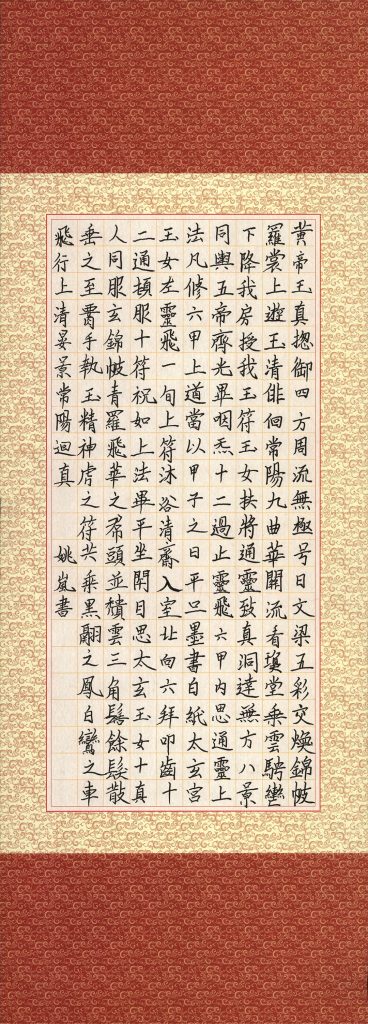 黄帝玉真揔御四方周流無極号曰文梁五彩交煥錦帔
羅裳上遊玉清俳佪常陽九曲華關流看瓊堂乘雲騁轡
下降我房授我玉符玉女扶將通靈致真洞達無方八景
同輿五帝齊光畢咽炁十二過止靈飛六甲内思通靈上
法凡修六甲上道當以甲子之日平旦墨書白紙太玄宮
玉女左靈飛一旬上符沐浴清齋入室北向六拜叩齒十
二通頓服十符祝如上法畢平坐閉目思太玄玉女十真
人同服玄錦帔青羅飛華之帬頭並穨雲三角髻餘髮散
垂之至腰手執玉精神虎之符共乘黑翮之鳳白鸞之車
飛行上清晏景常陽迴真 姚嵐書